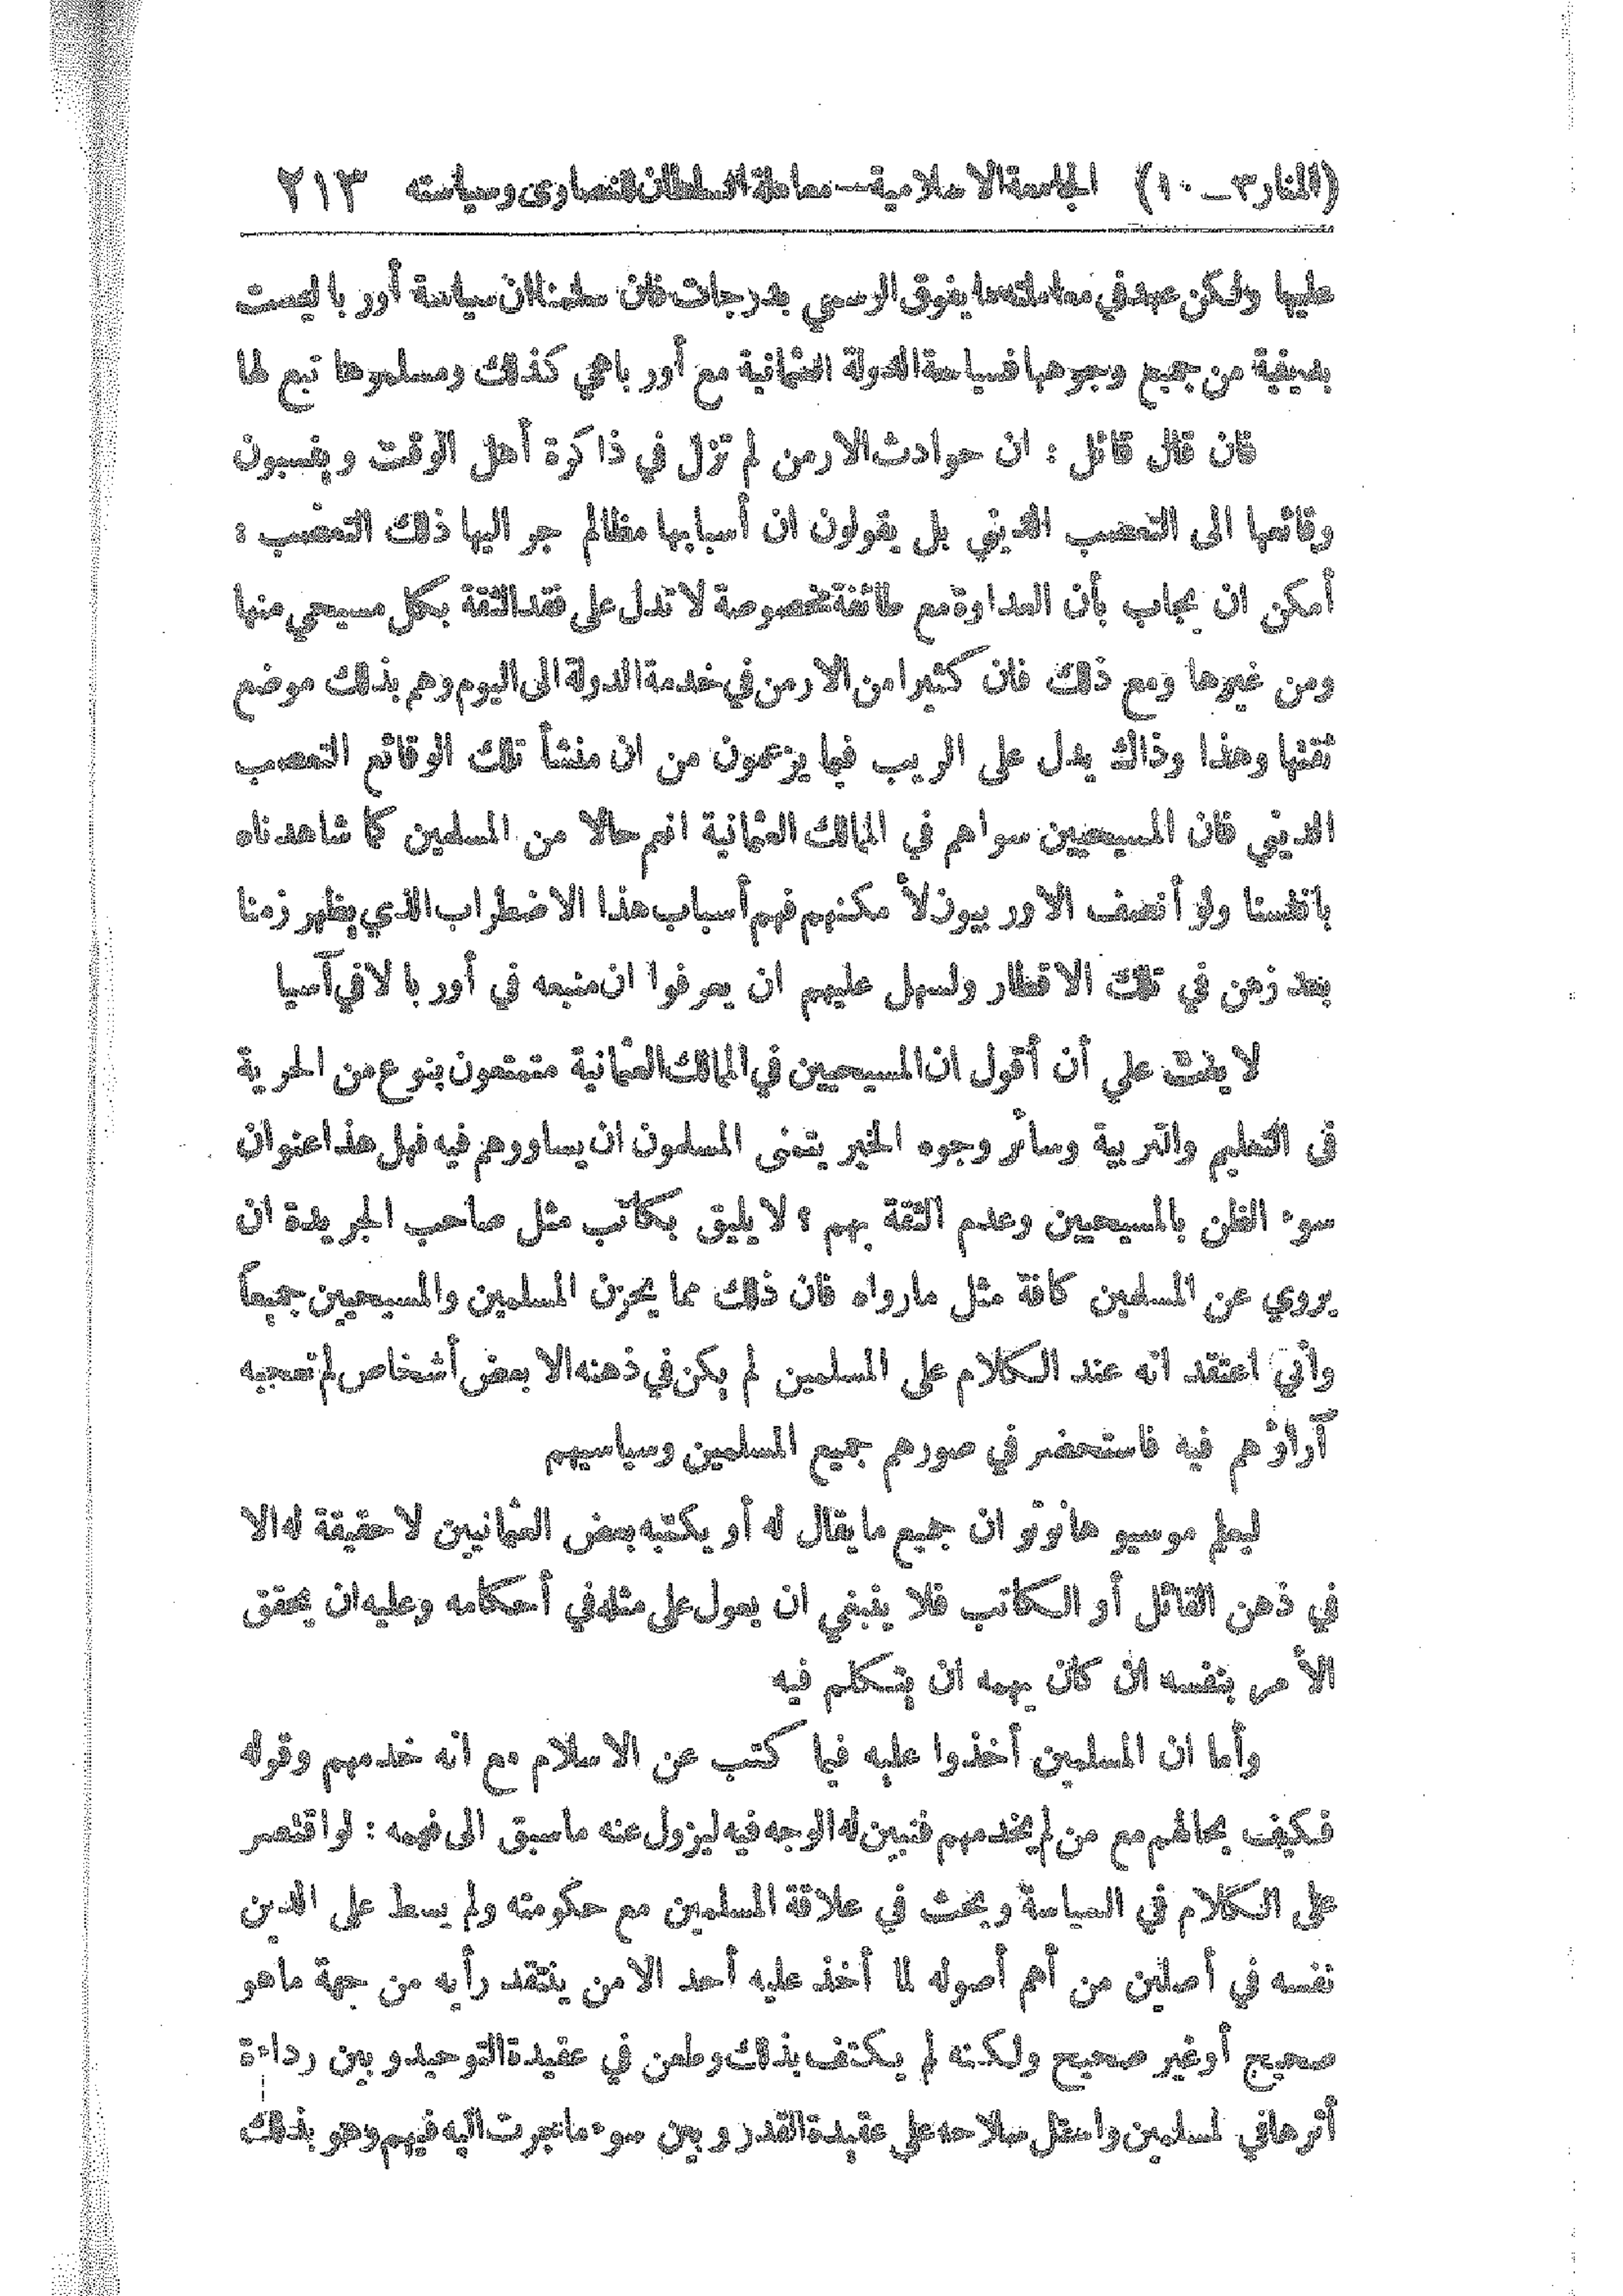 (المنار ٣ ــ ١٠) الجامعة الاسلامية ــ معاملة السلطان للنصارى وسياسته ٢١٣
عليها ولكن عبد في معاملته ما يفوق الرسمي بدرجات فان سلمنا ان سياسة أوربا ليست
بدينية من جميع وجوهها فسياسة الدولة العثمانية مع أوربا هي كذلك ومسلموها تبع لها
فان قال قائل : ان حوادث الارمن لم تزل في ذاكرة أهل الوقت وينسبون
وقائعها الى التعصب الديني بل يقولون ان أسبابها مظالم جر اليها ذلك التعصب :
أمكن ان يجاب بأن العداوة مع طائفة مخصوصة لا تدل على فقد الثقة بكل مسيحي منها
ومن غيرها ومع ذلك فان كثيرا من الارمن في خدمة الدولة الى اليوم وهم بذلك موضع
ثقتها وهذا وذاك يدل على الريب فيما يزعمون من ان منشأ تلك الوقائع التعصب
الديني فان المسيحيين سواهم في الممالك العثمانية انعم حالا من المسلمين كما شاهدناه
بانفسنا ولو أنصف الاوربيون لأمكنهم فهم أسباب هذا الاضطراب الذي يظهر زمنا
بعد زمن في تلك الاقطار ولسهل عليهم ان يعرفوا ان منبعه في أوربا لا في آسيا
لا يفت علي أن أقول ان المسيحيين في الممالك العثمانية متمتعون بنوع من الحرية
فى التعليم والتربية وسائر وجوه الخير يتمنى المسلمون ان يساووهم فيه فهل هذا عنوان
سوء الظن بالمسيحيين وعدم الثقة بهم ؟ لا يليق بكاتب مثل صاحب الجريدة ان
يروي عن المسلمين كافة مثل ما رواه فان ذلك مما يحزن المسلمين والمسيحيين جميعاً
وانّي اعتقد انه عند الكلام على المسلمين لم يكن في ذهنه الا بعض أشخاص لم تعجبه
آراؤهم فيه فاستحضر في صورهم جميع المسلمين وسياسيهم
ليعلم موسيو هانوتو ان جميع ما يقال له أو يكتبه بعض العثمانيين لا حقيقة له الا
في ذهن القائل أو الكاتب فلا ينبغي ان يعول على مثله في أحكامه وعليه ان يحقق
الأمر بنفسه ان كان يهمه ان يتكلم فيه
وأما ان المسلمين أخذوا عليه فيما كتب عن الاسلام مع انه خدمهم وقوله
فكيف بحالهم مع من لم يخدمهم فنبين له الوجه فيه ليزول عنه ما سبق الى فهمه : لو اقتصر
على الكلام في السياسة وبحث في علاقة المسلمين مع حكومته ولم يسط على الدين
نفسه في أصلين من أهم أصوله لما أخذ عليه أحد الا من ينتقد رأيه من جهة ما هو
صحيح أو غير صحيح ولكنه لم يكتف بذلك وطعن في عقيدة التوحيد وبين رداءة
أثرها في لمسلمين واستل سلاحه على عقيدة القدر وبين سوء ما تجرت اليه فيهم وهو بذلك